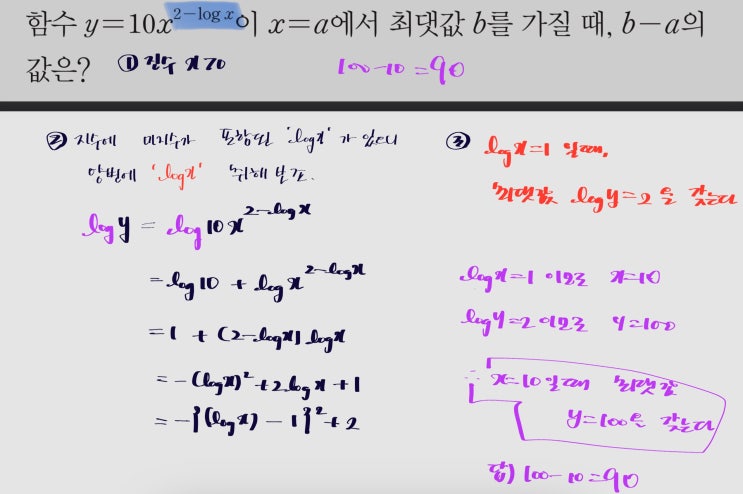 함수 y=10x^{2-log x}이 x=a에서 최댓값 b를 가질 때, b-a의
값은? ① 진수 x>0 100-10=90
② 지수에 미지수가 포함된 'log x'가 있으니
양변에 'log x' 취해 보면.
log y = log 10x^{2-log x}
= log 10 + log x^{2-log x}
= 1 + (2-log x) log x
= -(log x)²+2log x+1
= -{(log x)-1}²+2
③ log x=1 일때,
최댓값 log y=2을 갖는다
log x=1 이므로 x=10
log y=2이므로 y=100
∴ x=10일때 최댓값
y=100을 갖는다
답) 100-10=90